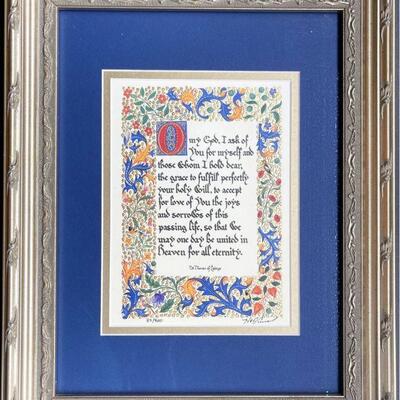 O my God, I ask of
You for myself and
those whom I hold dear,
the grace to fulfill perfectly
your holy Will, to accept
for love of You the joys
and sorrows of this
passing life, so that We
may one day be united in
Heaven for all eternity.